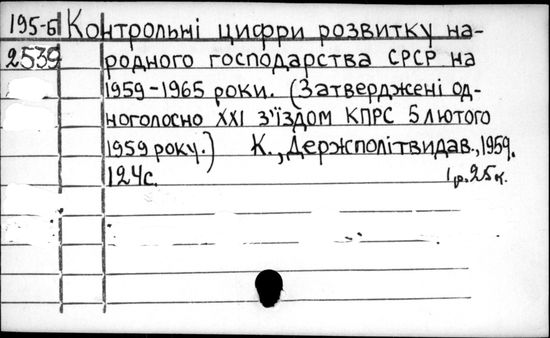 195-Б Контрольні цифри розвитку на-
2539 родного господарства СРСР на
1959-1965 роки. (Затверджені од-
ноголосно XXI з'їздом КПРС 5 лютого
1959 року.) К., Держполітвидав., 1959.
124с. 1р.25к.